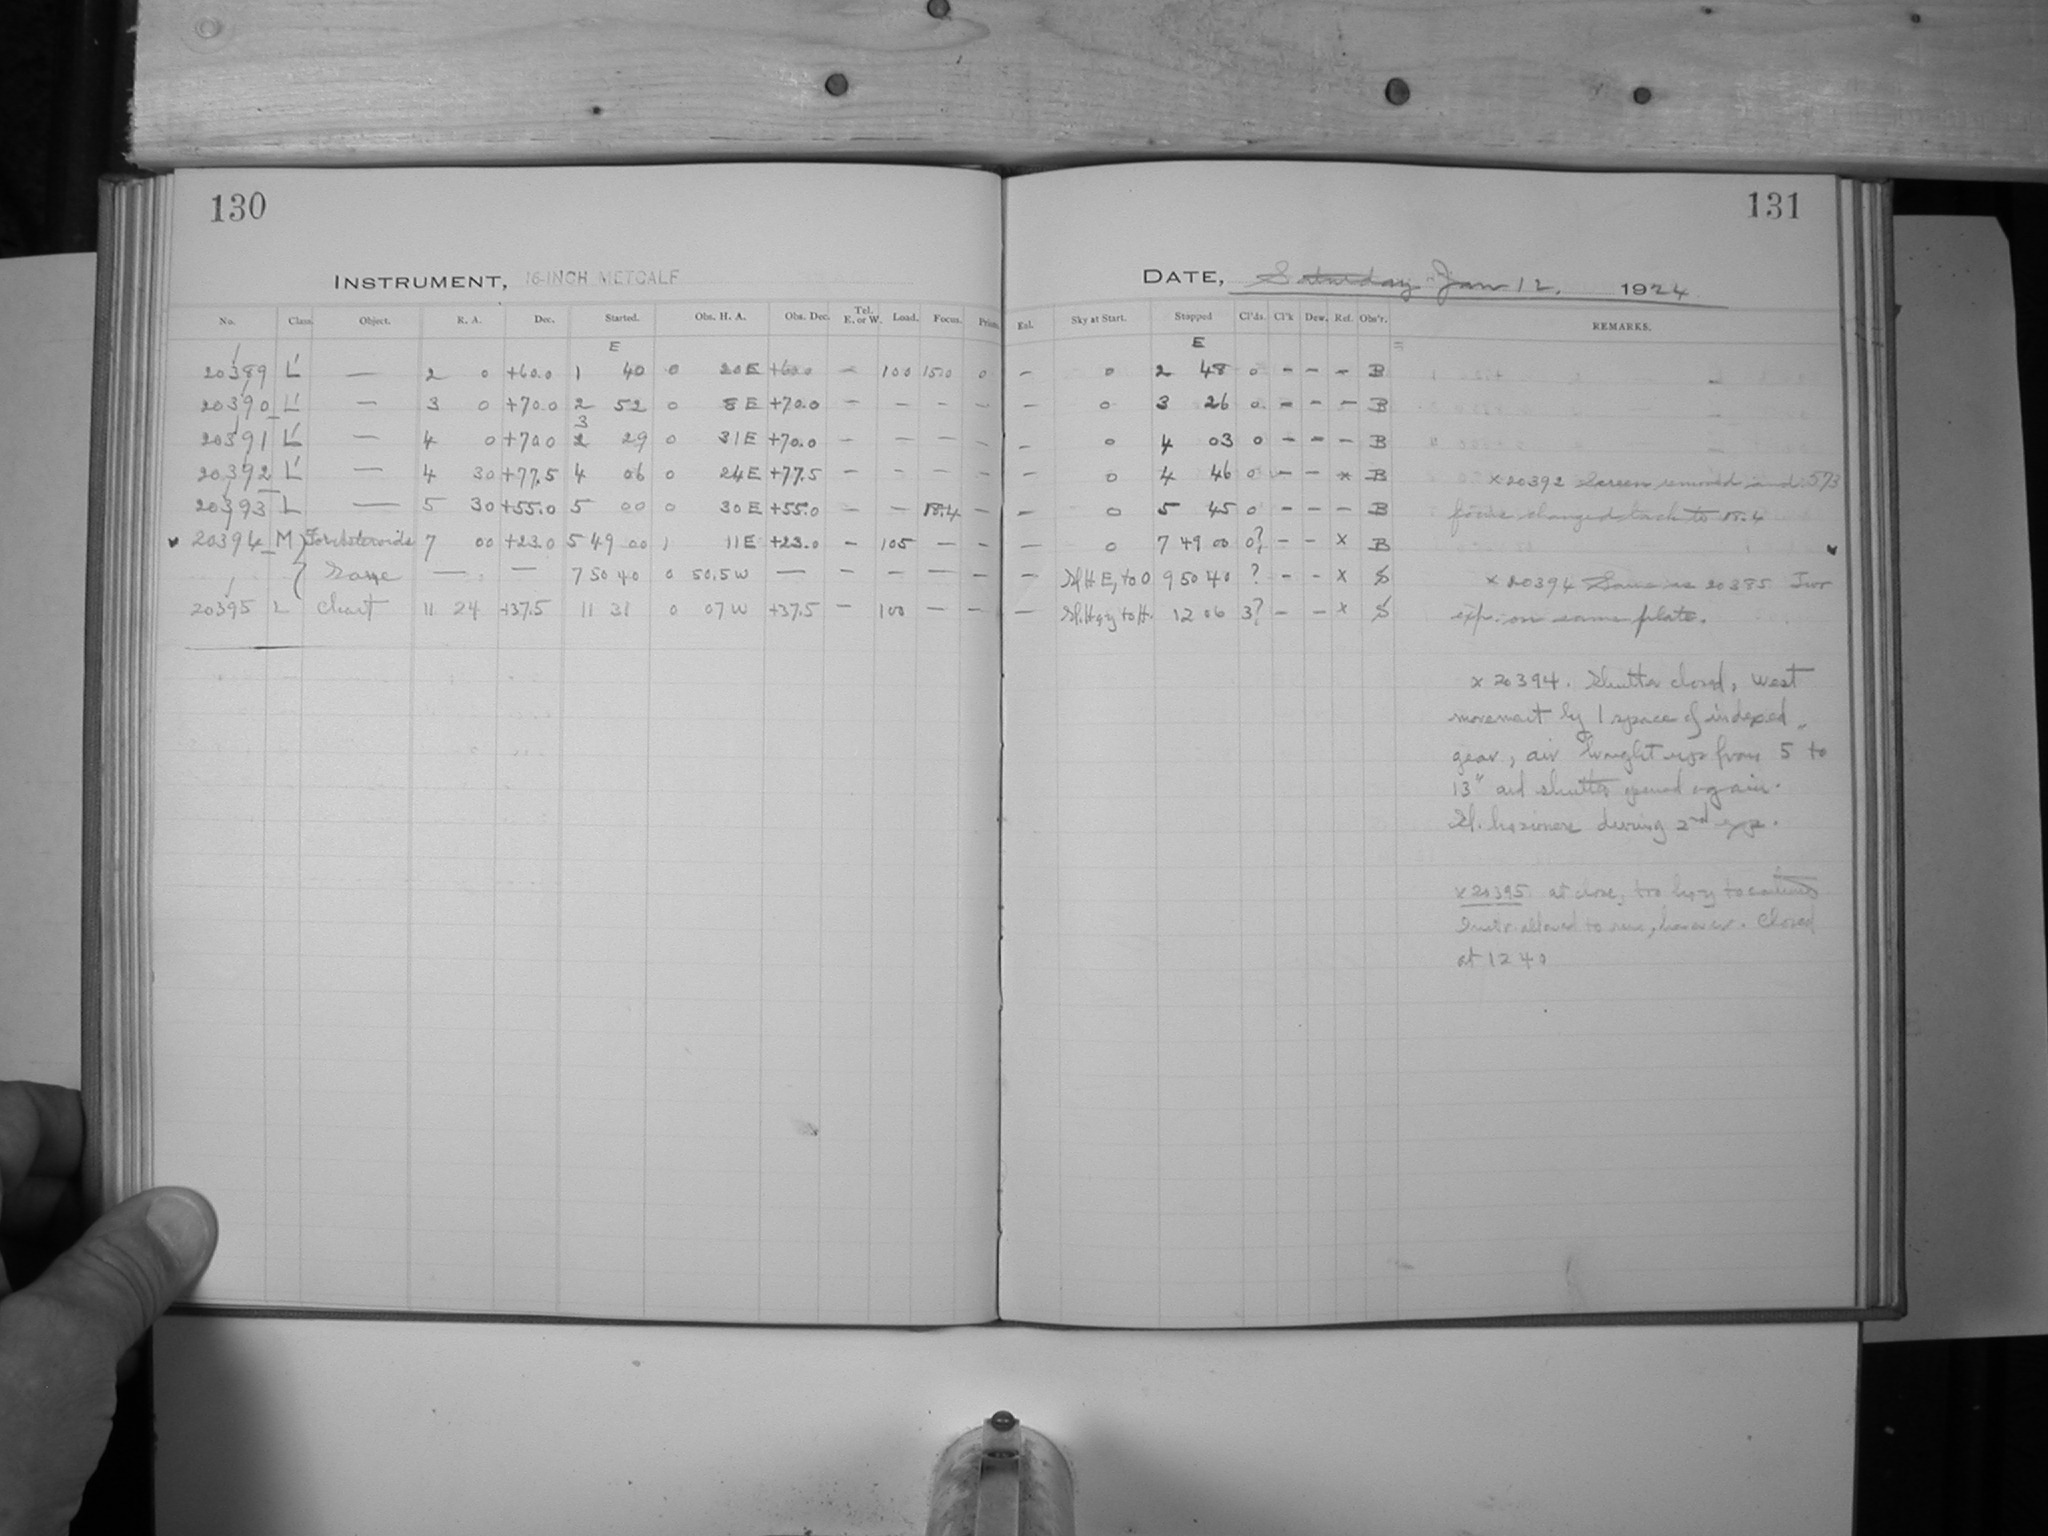 130
INSTRUMENT, 16-INCH METCALF
No. Class. Object. R. A. Dec. Started. Obs. H. A. Obs. Dec. Tel. E. or W. Load. Focus. Prism.
E
20389 L' — 2 0 +60.0 1 40 0 20 E +60.0 — 100 15.0 0
20390 L' — 3 0 +70.0 2 52 0 8 E +70.0 — — — —
3
20391 L' — 4 0 +70.0 2 29 0 31 E +70.0 — — — —
20392 L' — 4 30 +77.5 4 06 0 24 E +77.5 — — — —
20393 L — 5 30 +55.0 5 00 0 30 E +55.0 — — 18.4 —
20394 M For Asteroids 7 00 +23.0 5 49 00 1 11 E +23.0 — 105 — —
Same — — 7 50 40 0 50.5 W — — — — —
20395 L Chart 11 24 +37.5 11 31 0 07 W +37.5 — 100 — —
131
DATE, Saturday Jan 12, 1924
Ext. Sky at Start. Stopped Cl'ds. Cl'k Dew. Ref. Obs'r. REMARKS.
E
— 0 2 48 0 — — — B
— 0 3 26 0 — — — B
— 0 4 03 0 — — — B
— 0 4 46 0 — — x B
— 0 5 45 0 — — — B
— 0 7 49 00 0? — — x B
— Sl. H E, to O 9 50 40 ? — — x S
— Sl. Hazy to H. 12 06 3? — — x S
x 20392 Screen removed and 573
focus changed back to 18.4
x 20394 Same as 20385 Two
exp. on same plate.
x 20394. Shutter closed, west
movement by 1 space of indexed
gear, air brought up from 5 to
13" and shutter opened again.
Sl. haziness during 2nd exp.
x 20395 at close, too hazy to continue
Instr. allowed to run, however. Closed
at 12 40